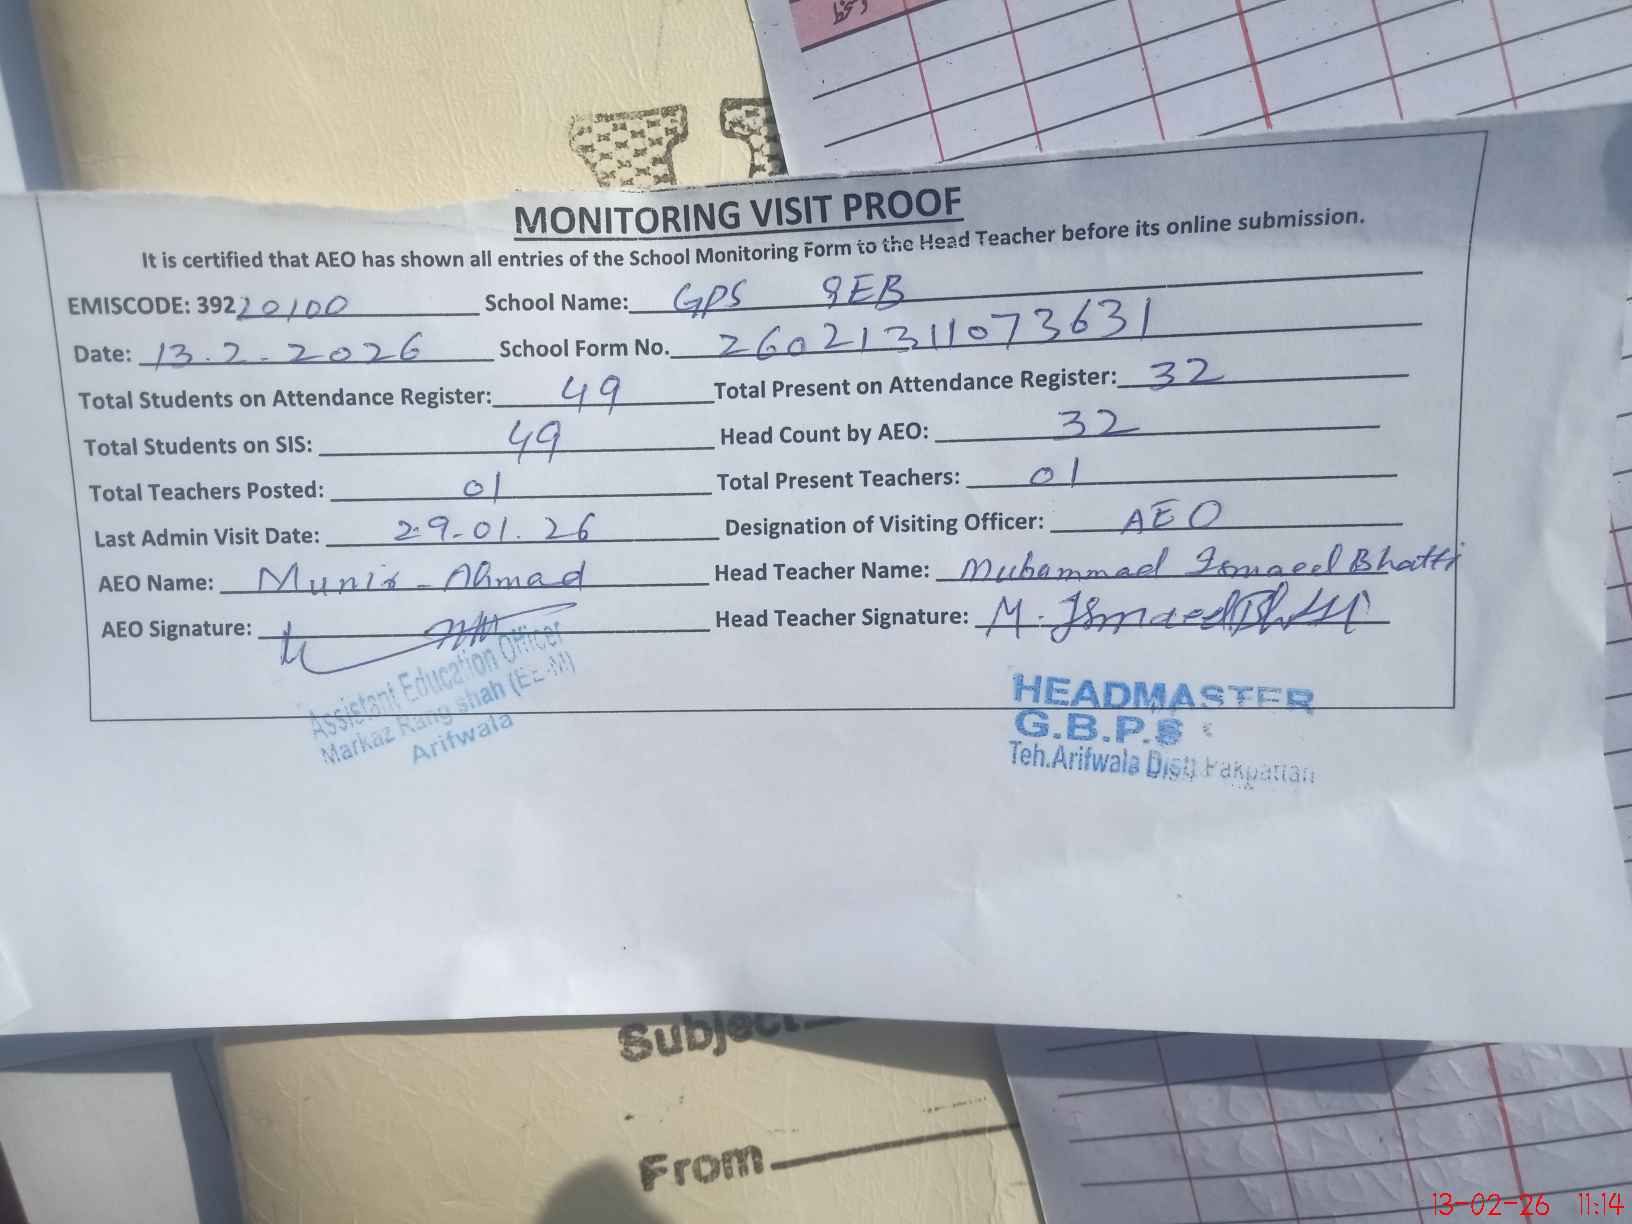 MONITORING VISIT PROOF
It is certified that AEO has shown all entries of the School Monitoring Form to the Head Teacher before its online submission.
EMISCODE: 39220100 School Name: GPS 8EB
Date: 13.2-2026 School Form No. 26021311073631
Total Students on Attendance Register: 49 Total Present on Attendance Register: 32
Total Students on SIS: 49 Head Count by AEO: 32
Total Teachers Posted: 01 Total Present Teachers: 01
Last Admin Visit Date: 29-01.26 Designation of Visiting Officer: AEO
AEO Name: Munir Ahmad Head Teacher Name: Muhammad Ismaeel Bhatti
AEO Signature: Head Teacher Signature: M. Ismaeel Bhatti
Assistant Education Officer
Markaz Rang shah (EE-M)
Arifwala
HEADMASTER
G.B.P.S
Teh.Arifwala Distt Pakpattan
Subject
From
13-02-26 11:14